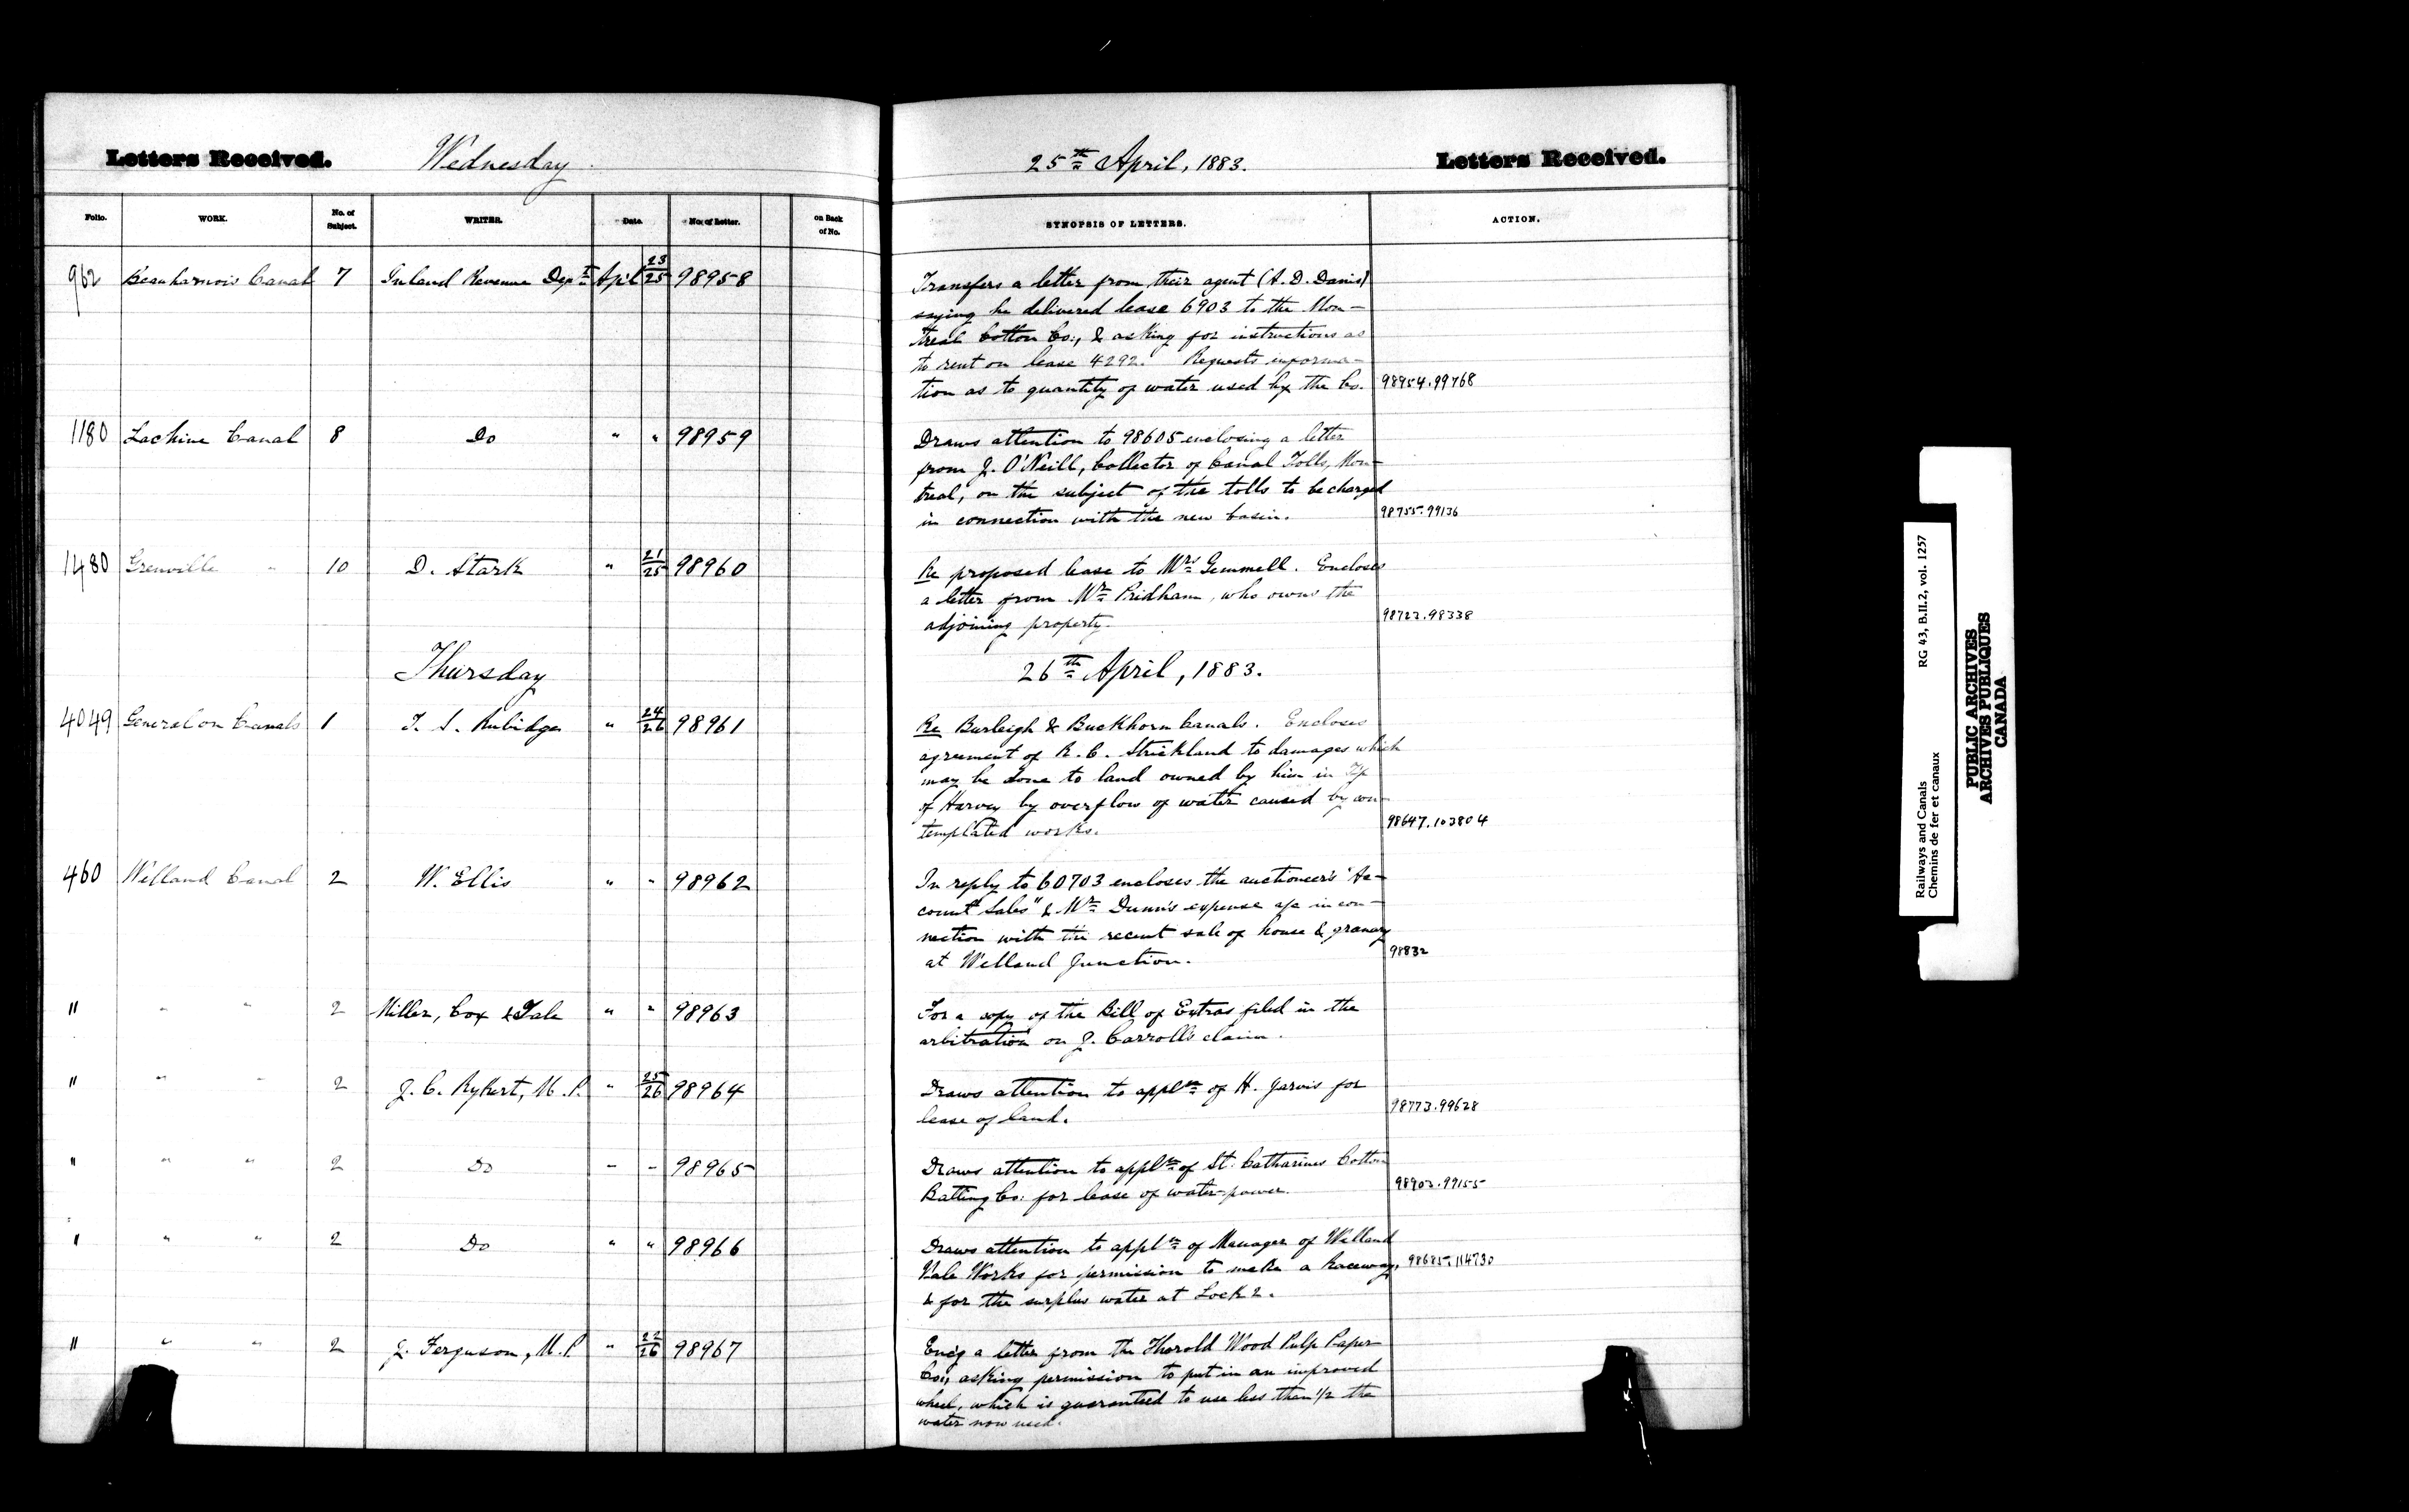 Letters Received. Wednesday 25th April, 1883. Letters Received.
Folio. WORK. No. of Subject. WRITER. Date. No. of Letter. on Back of No. SYNOPSIS OF LETTERS. ACTION.
962 Beauharnois Canal 7 Inland Revenue Dept Apl 23/25 98958 Transfers a letter from their agent (A. D. Danis)
saying he delivered lease 6903 to the Mon-
treal Cotton Co., & asking for instructions as
to rent on lease 4292. Requests informa-
tion as to quantity of water used by the Co. 98954.99768
1180 Lachine Canal 8 Do " " 98959 Draws attention to 98605 enclosing a letter
from J. O'Neill, Collector of Canal Tolls, Mon-
treal, on the subject of the tolls to be charged
in connection with the new basin. 98755.99136
1480 Grenville " 10 D. Stark " 21/25 98960 Re proposed lease to Mrs Gemmell. Encloses
a letter from Mr Pridham, who owns the
adjoining property. 98723.98338
Thursday 26th April, 1883.
4049 General on Canals 1 T. S. Rubidge " 24/26 98961 Re Burleigh & Buckhorn Canals. Encloses
agreement of R. C. Strickland to damages which
may be done to land owned by him in Tp
of Harvey by overflow of water caused by con-
templated works. 98647.103804
460 Welland Canal 2 W. Ellis " " 98962 In reply to 60703 encloses the auctioneer's "Ac-
count Sales" & Mr Dunn's expense a/c in con-
nection with the recent sale of house & granary
at Welland Junction. 98832
" " " 2 Miller, Cox & Yale " " 98963 For a copy of the Bill of Extras filed in the
arbitration on J. Carroll's claim.
" " " 2 J. C. Rykert, M.P. " 25/26 98964 Draws attention to appln of H. Jarvis for
lease of land. 98773.99628
" " " 2 Do " " 98965 Draws attention to appln of St. Catharines Cotton
Batting Co. for lease of water-power. 98903.99155
" " " 2 Do " " 98966 Draws attention to appln of Manager of Welland
Vale Works for permission to make a Raceway, 98685.114730
& for the surplus water at Lock 2.
" " " 2 J. Ferguson, M.P. " 22/26 98967 Encg a letter from the Thorold Wood Pulp Paper
Co., asking permission to put in an improved
wheel, which is guaranteed to use less than 1/2 the
water now used.
Railways and Canals RG 43, B.II.2, vol. 1257
Chemins de fer et canaux
PUBLIC ARCHIVES
ARCHIVES PUBLIQUES
CANADA